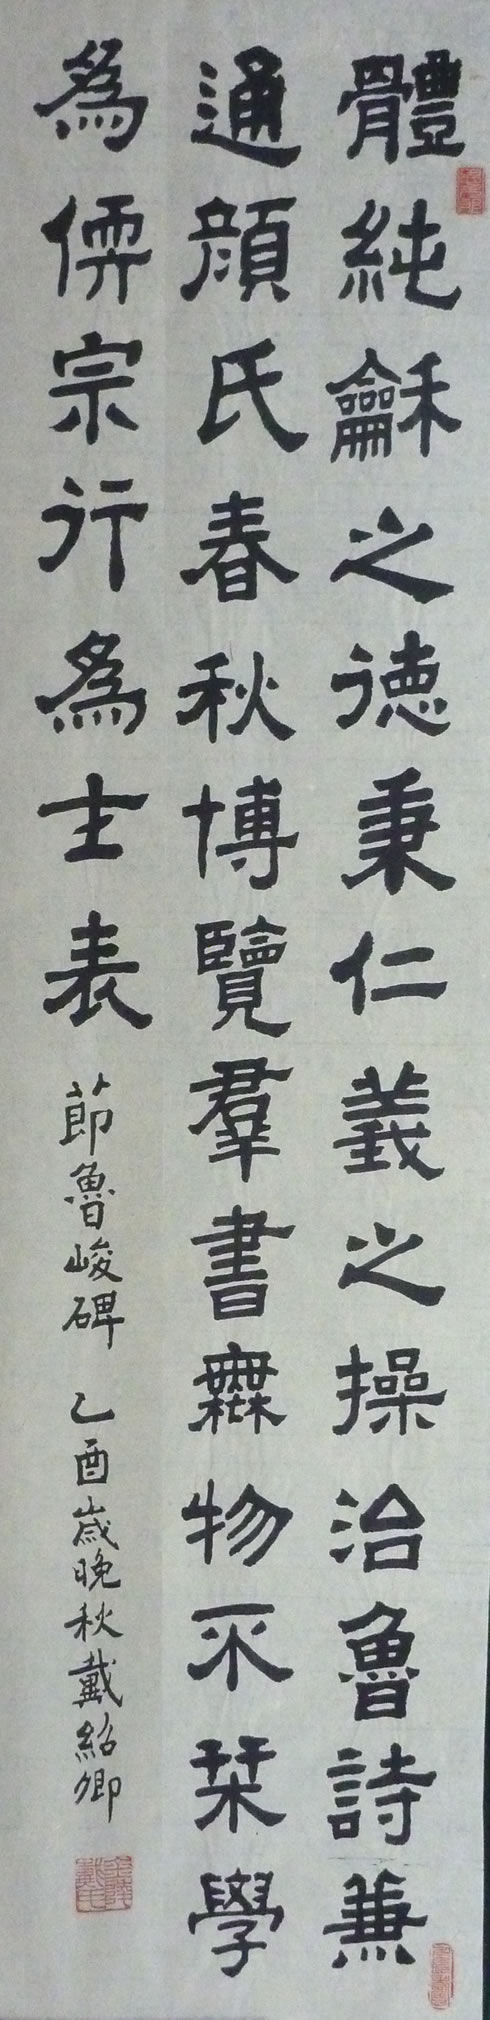 體純龢之德秉仁義之操治魯詩兼
通顏氏春秋博覽羣書無物不栞學
為儒宗行為士表
節魯峻碑 乙酉歲晚秋戴紹卿